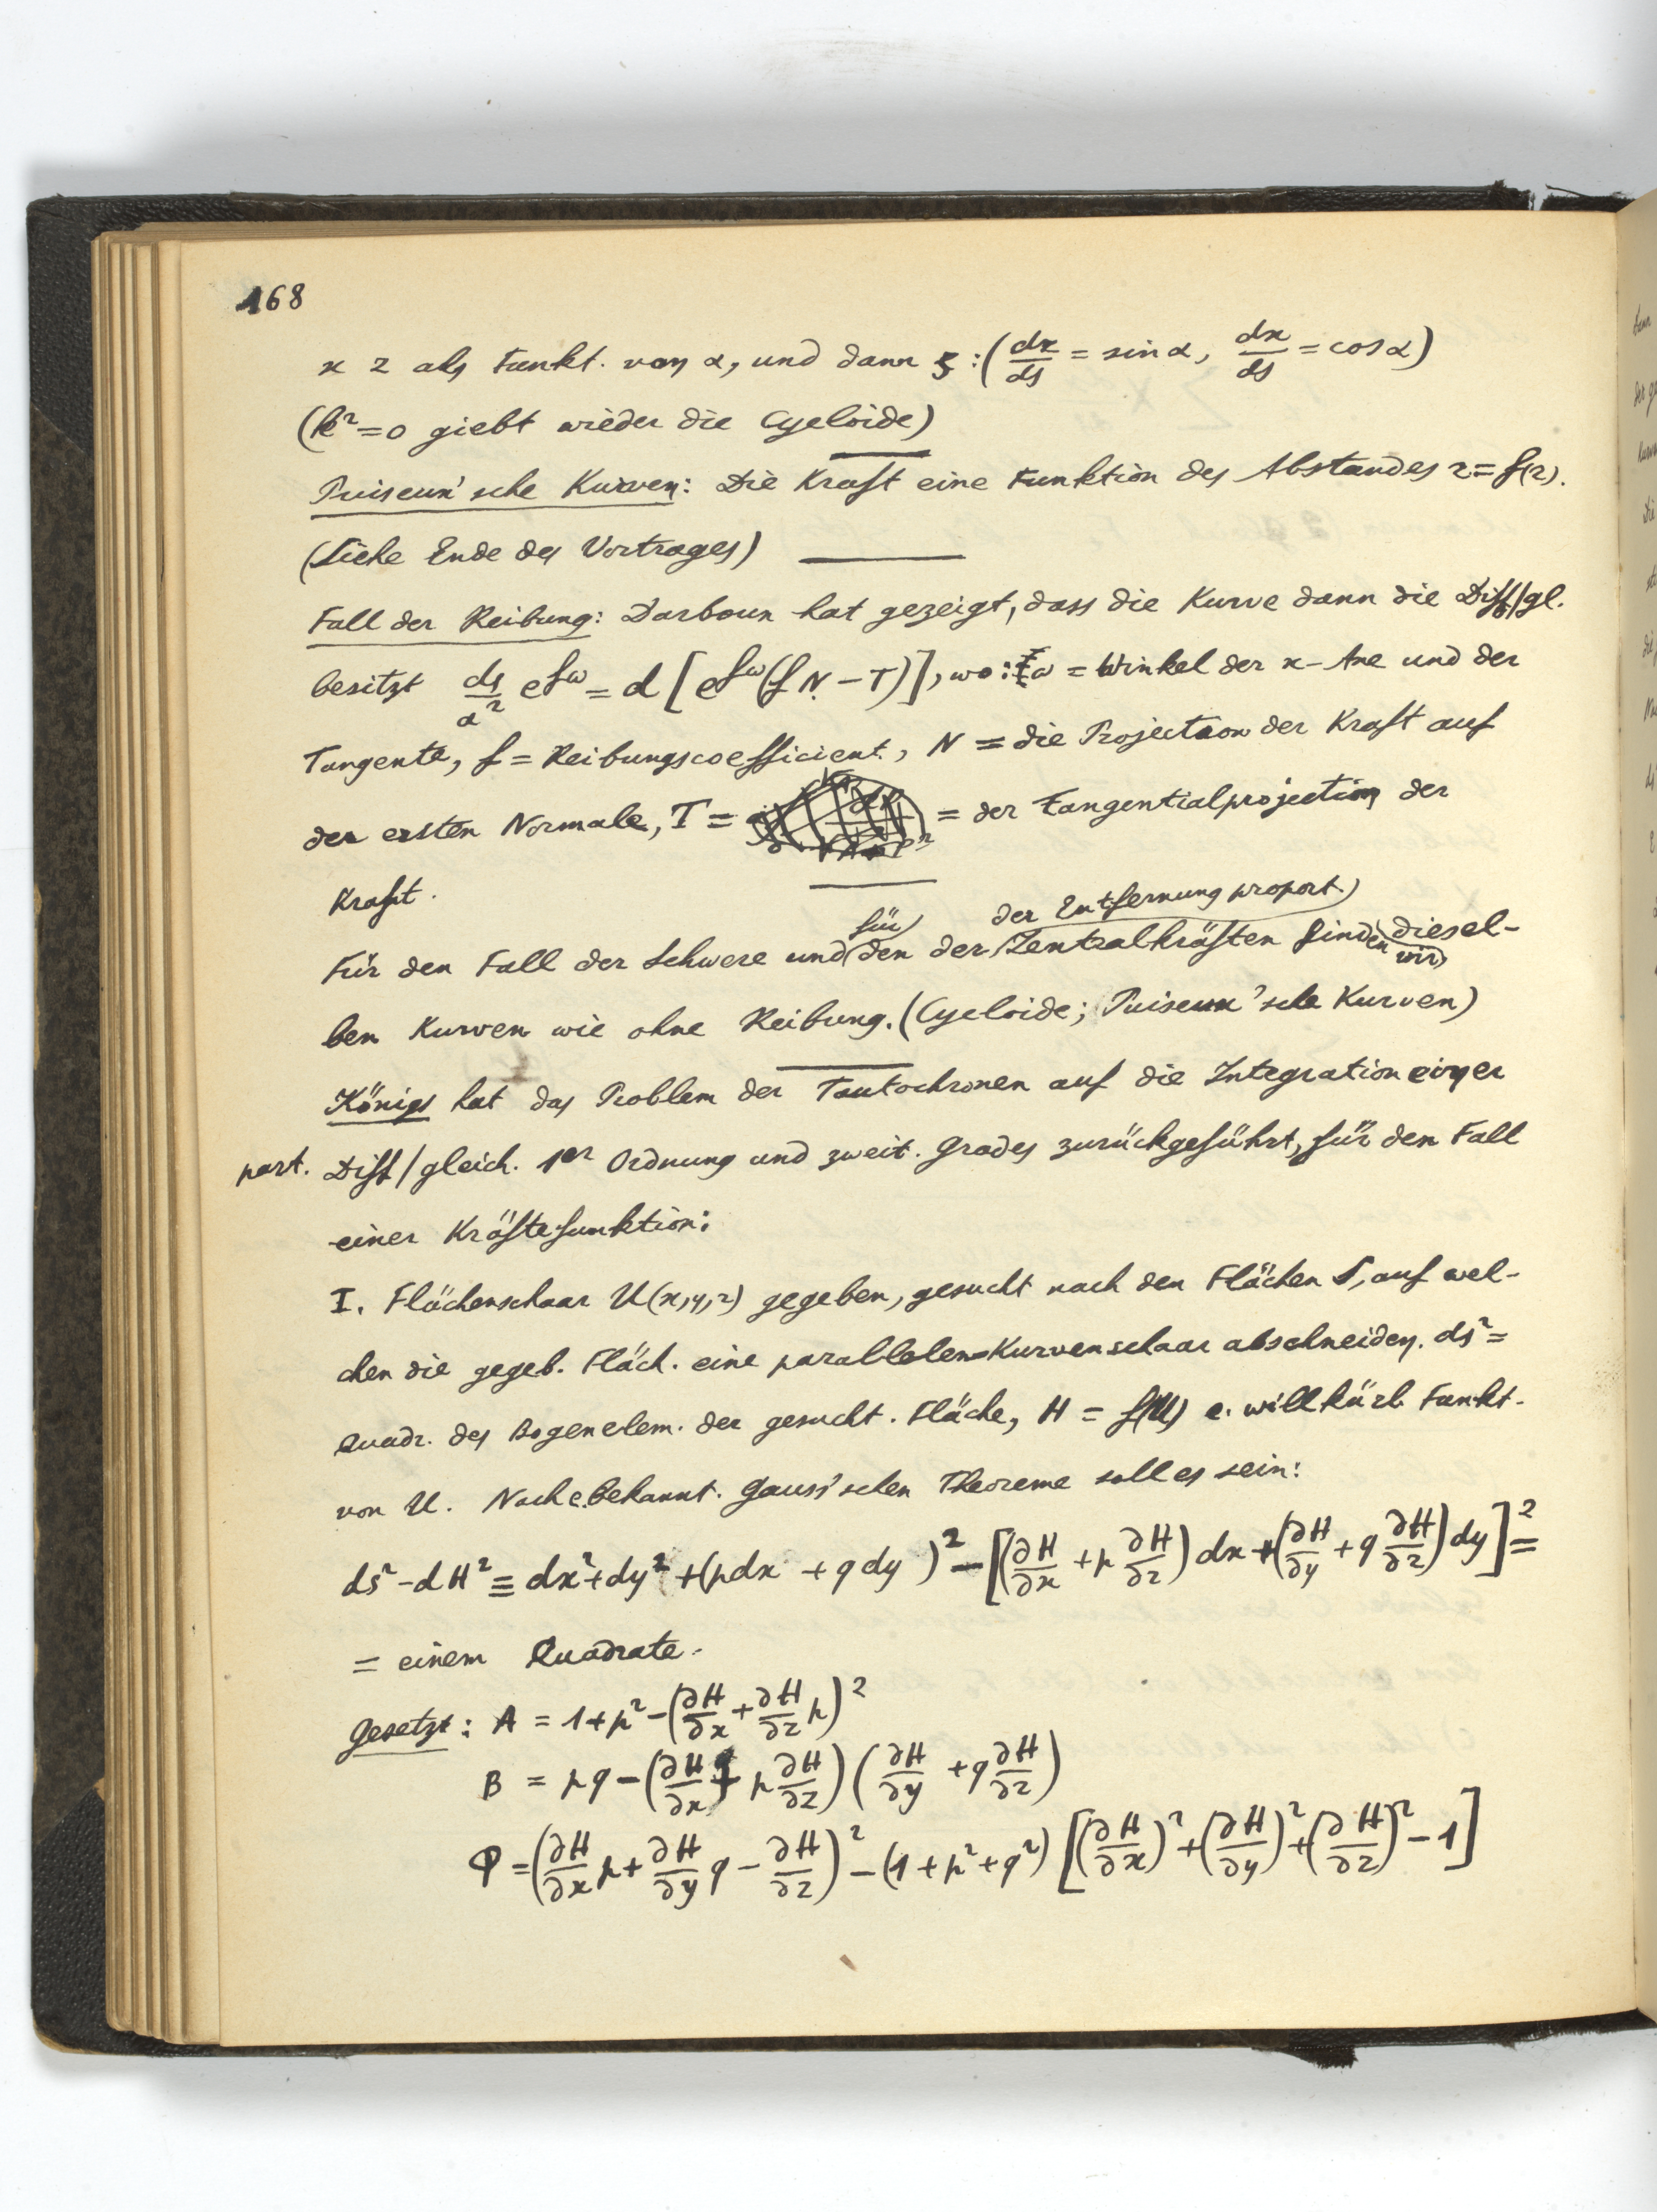 168
x z als Funkt. von α, und dann ξ : (dx/ds = sin α, dx/ds = cos α)
(k² = 0 giebt wieder die Cycloide)
Puiseux'sche Kurven: Die Kraft eine Funktion des Abstandes r = f(r).
(Siehe Ende des Vortrages)
Fall der Reibung: Darboux hat gezeigt, dass die Kurve dann die Diff/gl.
besitzt ds/α² e^{fω} = d [e^{fω}(f N - T)], wo: ω = Winkel der x-Axe und der
Tangente, f = Reibungscoefficient, N = die Projection der Kraft auf
der ersten Normale, T = = der Tangentialprojection der
Kraft.
Für den Fall der Schwere und für den der der Entfernung proport. Zentralkräften finden wir diesel-
ben Kurven wie ohne Reibung. (Cycloide; Puiseux'sche Kurven)
Königs hat das Problem der Tautochronen auf die Integration einer
part. Diff/gleich. 1er Ordnung und zweit. Grades zurückgeführt, für den Fall
einer Kräftefunktion:
I. Flächenschaar U(x,y,z) gegeben, gesucht nach den Flächen S, auf wel-
chen die gegeb. Fläch. eine parallelen-Kurvenschaar abschneiden. ds² =
Quadr. des Bogenelem. der gesucht. Fläche, H = f(U) e. willkürl. Funkt.
von U. Nach e. bekannt. Gauss'schen Theoreme soll es sein:
ds² - dH² ≡ dx² + dy² + (pdx + qdy)² - [(∂H/∂x + p ∂H/∂z) dx + (∂H/∂y + q ∂H/∂z) dy]² =
= einem Quadrate.
Gesetzt: A = 1 + p² - (∂H/∂x + ∂H/∂z p)²
B = pq - (∂H/∂x + p ∂H/∂z) (∂H/∂y + q ∂H/∂z)
Φ = (∂H/∂x p + ∂H/∂y q - ∂H/∂z)² - (1 + p² + q²) [(∂H/∂x)² + (∂H/∂y)² + (∂H/∂z)² - 1]